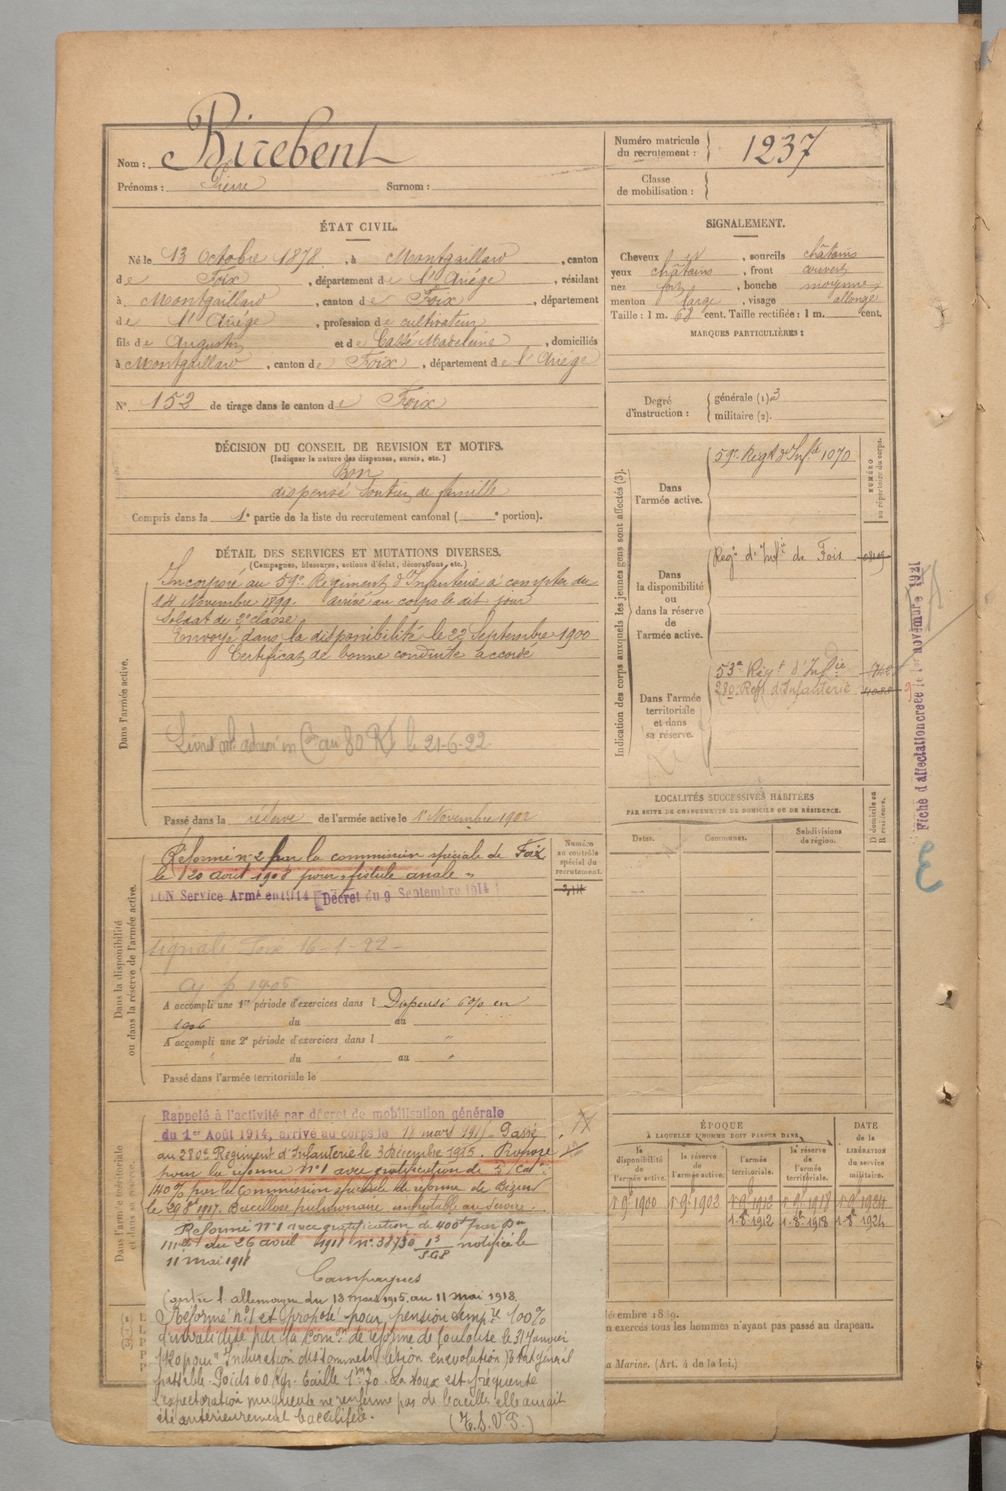 Nom : Birebent
Prénoms : Pierre Surnom :
Numéro matricule
du recrutement : 1237
Classe
de mobilisation :
ÉTAT CIVIL.
Né le 13 Octobre 1878, à Montgaillard, canton
de Foix, département de l'Ariége, résidant
à Montgaillard, canton de Foix, département
de l'Ariége, profession de cultivateur
fils de Augustin et de Cassé Madeleine, domiciliés
à Montgaillard, canton de Foix, département de l'Ariége
N° 152 de tirage dans le canton de Foix
SIGNALEMENT.
Cheveux et, sourcils châtains
yeux châtains, front couvert
nez fort, bouche moyenne
menton large, visage allongé
Taille : 1 m. 68 cent. Taille rectifiée : 1 m. cent.
MARQUES PARTICULIÈRES :
Degré
d'instruction :
générale (1) 3
militaire (2).
DÉCISION DU CONSEIL DE REVISION ET MOTIFS.
(Indiquer la nature des dispenses, sursis, etc.)
Bon
dispensé Soutien de famille
Compris dans la 1e partie de la liste du recrutement cantonal ( e portion).
DÉTAIL DES SERVICES ET MUTATIONS DIVERSES.
(Campagnes, blessures, actions d'éclat, décorations, etc.)
Dans l'armée active.
Incorporé au 59e Régiment d'Infanterie à compter du
14 Novembre 1899. arrivé au corps le dit jour
Soldat de 2e classe
Envoyé dans la disponibilité le 23 Septembre 1900
Certificat de bonne conduite accordé
au 80 RI le 21-6-22
Passé dans la réserve de l'armée active le 1 Novembre 1902
Indication des corps auxquels les jeunes gens sont affectés (3).
Dans
l'armée active.
59e Regt d'Infie 1070
NUMÉRO
au répertoire du corps.
Dans
la disponibilité
ou
dans la réserve
de
l'armée active.
Regt d'Infie de Foix
Dans l'armée
territoriale
et dans
sa réserve.
53e Régt d'Infie
280 Regt d'Infanterie
Fiche d'affectation créée le 1er novembre 1921
3
LOCALITÉS SUCCESSIVES HABITÉES
PAR SUITE DE CHANGEMENTS DE DOMICILE OU DE RÉSIDENCE.
Dates.
Communes.
Subdivisions
de région.
D domicile ou
R résidence.
Dans la disponibilité
ou dans la réserve de l'armée active.
Réformé n° 2 par la commission spéciale de Foix
le 20 aout 1908 pour "fistule anale"
Numéro
au contrôle
spécial du
recrutement.
BON Service Armé en 1914 Décret du 9 Septembre 1914
signalé Foix 16-1-22
A accompli une 1re période d'exercices dans l Dispensé en
1906 du au
A accompli une 2e période d'exercices dans l "
" du " au "
Passé dans l'armée territoriale le
Dans l'armée territoriale
et dans sa réserve.
Rappelé à l'activité par décret de mobilisation générale
du 1er Août 1914, arrivé au corps le 18 mars 1915 Passé
au 280e Régiment d'Infanterie le 3 décembre 1915. Proposé
pour la réforme n° 1 avec gratification de 5 cat.
par la Commission spéciale de réforme de
le 29 8t 1917. Bacillose pulmonaire imputable au service.
Réformé n° 1 avec gratification de par Don
mlle du 26 avril 1918 n° 38730 notifiée le
11 mai 1918
Campagnes
Contre l'allemagne du 18 mars 1915 au 11 mai 1918
Réformé n° 1 et proposé pour pension tempre 100%
d'invalidité par la Comon de réforme de Toulouse le 31 janvier
1920 pour "Induration des sommets (lésion en évolution) Etat général
passable. Poids 60 kgr. taille 1m70. La toux est fréquente
l'expectoration muqueuse ne renferme pas de bacilles elle aurait
été antérieurement bacillifère.
(T.S.V.P.)
ÉPOQUE
À LAQUELLE L'HOMME DOIT PASSER DANS
la
disponibilité
de
l'armée active.
la réserve
de
l'armée active.
l'armée
territoriale.
la réserve
de
l'armée
territoriale.
DATE
de la
LIBÉRATION
du service
militaire.
1 9e 1900 1 9e 1902 1 9e 1912 1 9e 1918 1 9e 1924
1-8e 1912 1-8e 1918 1-8e 1924
décembre 1889.
on exercés tous les hommes n'ayant pas passé au drapeau.
la Marine. (Art. 4 de la loi.)